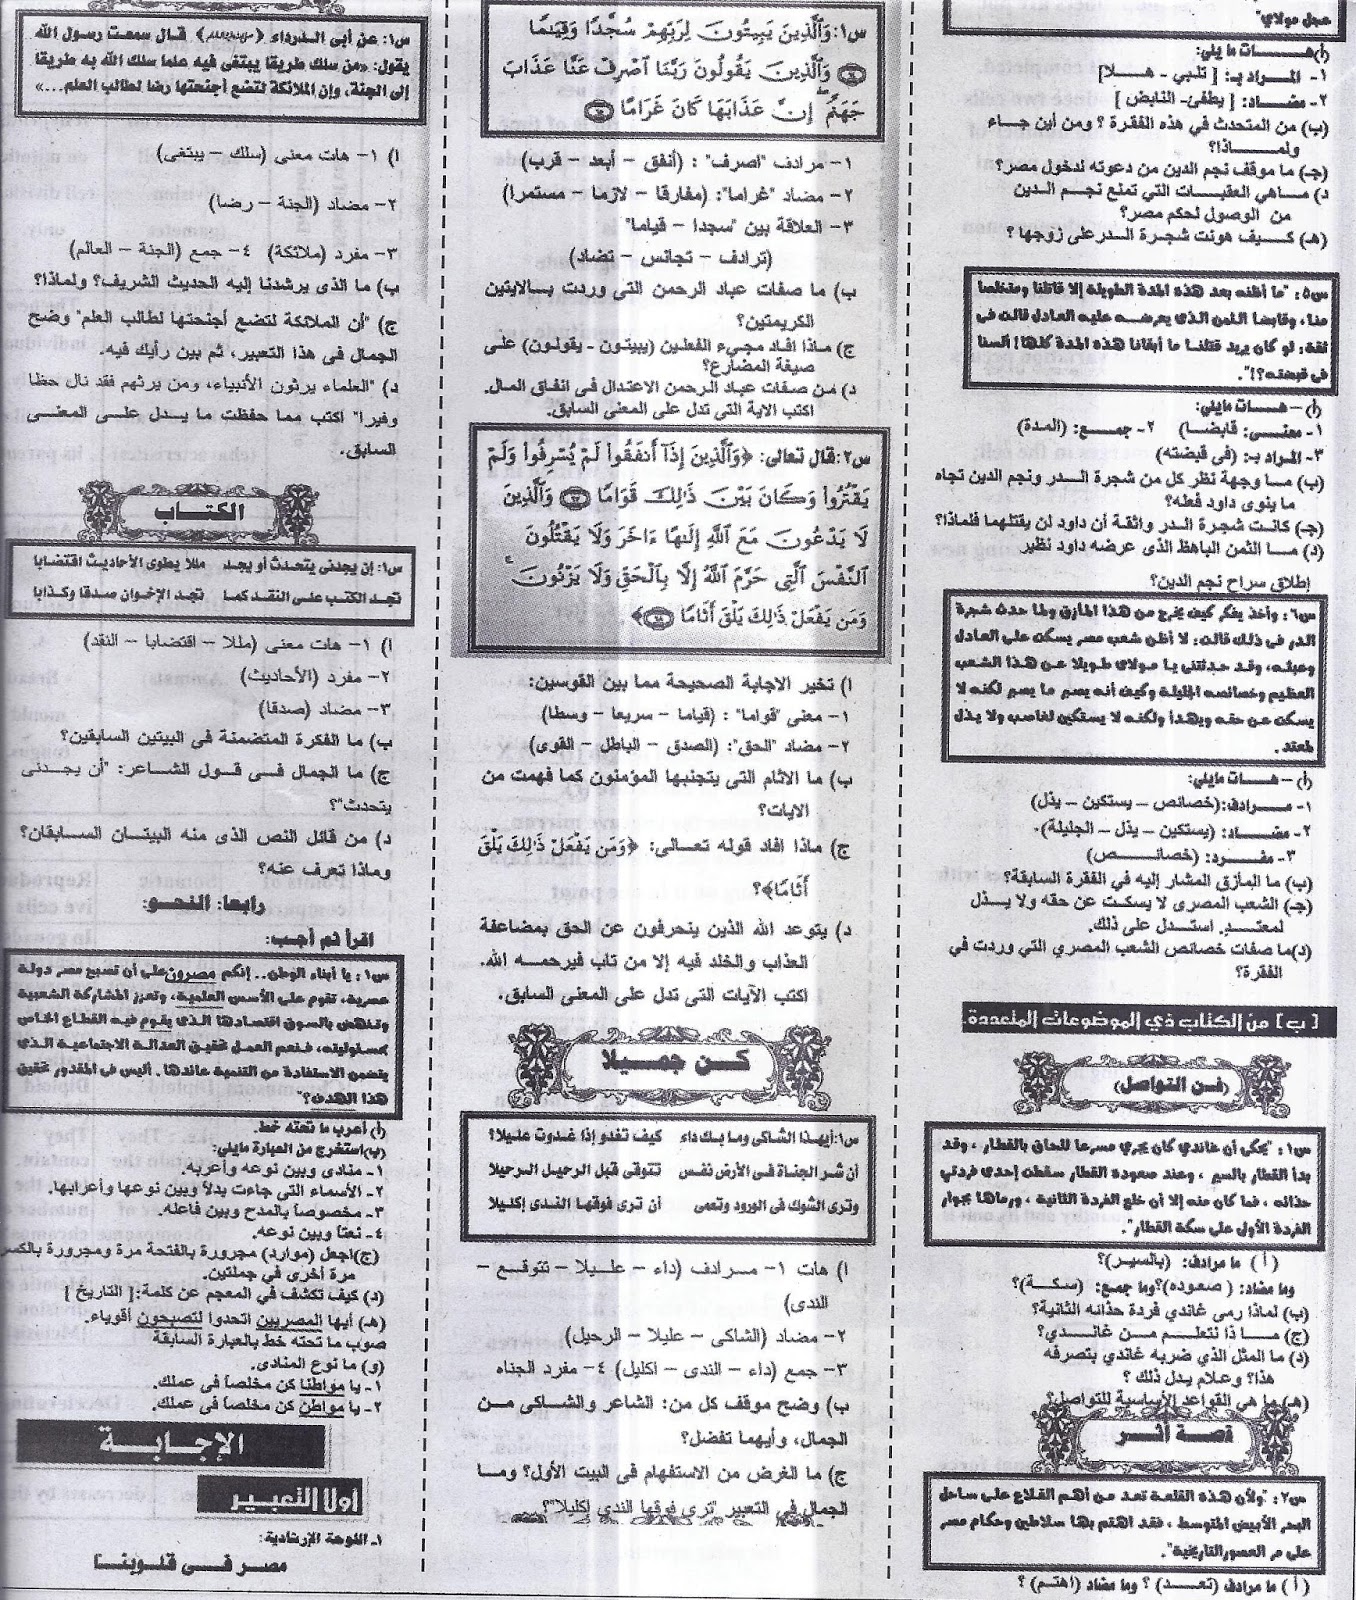 عجل مولاي"
(أ) هـــات ما يلي:
١- المراد بـ: [ تلبي - هـلا ]
٢- مضاد: [ يطفئ- النابض ]
(ب) من المتحدث في هذه الفقرة ؟ ومن أين جاء
ولمـــاذا؟
(جـ) ما موقف نجم الدين من دعوته لدخول مصر؟
د) مـاهي العقبـات التي تمنع نجـم الـدين
من الوصول لحكم مصر؟
(هـ) كـيف هونت شجـرة الـدر على زوجها ؟
س٥: "ما أظنه بعد هذه المدة الطويلة إلا قاتلنا ومتخلصا
منا، وقابضا الثمن الذى يعرضه عليه العادل قالت فى
ثقة: لو كان يريد قتلنا ما أبقانا هذه المدة كلها! ألسنا
فى قبضته؟!".
(أ) – هـــات مايلي:
١- معنـى: قابضـا) ٢- جمـع: (المدة)
٣- المراد بـ: (فى قبضته)
(ب) مـا وجهة نظر كل من شجرة الـدر ونجم الدين تجاه
ما ينوى داود فعله؟
(جـ) كانت شجرة الـدر واثقة أن داود لن يقتلهما فلماذا؟
(د) مـا الثمن الباهظ الذى عرضه داود نظير
إطلاق سراح نجم الدين؟
س٦: وأخذ يفكر كيف يخرج من هذا المأزق ولما حدث شجرة
الدر فى ذلك قالت: لا أظن شعب مصر يسكت على العادل
وعبثه، وقد حدثتنى يا مولاى طويلا عن هذا الشعب
العظيم وخصائصه الجليلة وكيف أنه يسم ما يسم لكنه لا
يسكت عن حقه ويهدأ ولكنه لا يستكين لغاصب ولا يذل
لمعتد.
(أ) – هـــات مايلي:
١- مـــرادف:(خصائص – يستكين – يذل)
٢- مضـــاد: (يستكين – يذل – الجليلة).
٣- مفــرد: (خصائـــص)
(ب) ما المأزق المشار إليه في الفقرة السابقة؟
(جـ) الشعب المصرى لا يسكـت عن حقه ولا يـذل
لمعتـــد. استـدل على ذلك.
(د)ما صفات خصائص الشعب المصري التي وردت في
الفقرة؟
[ ب ] من الكتاب ذي الموضوعات المتعددة
(فـن التواصل)
س١: "يحكى أن غاندي كان يجري مسرعا للحاق بالقطار ، وقد
بدأ القطار بالسير ، وعند صعوده القطار سقطت إحدى فردتي
حذائه ، فما كان منه إلا أن خلع الفردة الثانية ، ورماها بجوار
الفردة الأولى على سكة القطار".
( أ ) ما مرادف: (بالسير)؟
وما مضاد: (صعوده)؟وما جمع: (سكـة)؟
(ب) لماذا رمى غاندي فردة حذائه الثانية؟
(ج) مــا ذا نتعلـــم مـــن غانـــدي؟
(د) ما المثل الذي ضربه غاندي بتصرفه
هذا؟ وعلام يدل ذلك ؟
(هـ) ما هي القواعد الأساسية للتواصل؟
قصـة أثـر
س٢: "ولأن هذه القلعة تعد من أهم القلاع على ساحل
البحر الأبيض المتوسط ، فقد اهتم بها سلاطين وحكام مصر
على مر العصور التاريخية".
( أ ) ما مرادف (تعــد) ؟ وما مضاد (اهتم) ؟
س١: وَٱلَّذِينَ يَبِيتُونَ لِرَبِّهِمْ سُجَّدًا وَقِيَٰمًا
وَٱلَّذِينَ يَقُولُونَ رَبَّنَا ٱصْرِفْ عَنَّا عَذَابَ
جَهَنَّمَ إِنَّ عَذَابَهَا كَانَ غَرَامًا
١- مرادف "اصرف" : (أنفق – أبعد – قرب)
٢- مضاد "غراما": (مفارقا – لازما – مستمرا)
٣- العلاقة بين "سجدا – قياما"
(ترادف – تجانس – تضاد)
ب) ما صفات عباد الرحمن التى وردت بـالايتين
الكريمتين؟
ج) ماذا افاد مجيء الفعلين (يبيتون - يقولون) على
صيغة المضارع؟
د) من صفات عباد الرحمن الاعتدال فى انفاق المال.
اكتب الاية التى تدل على المعنى السابق.
س٢:قال تعالى: ﴿وَٱلَّذِينَ إِذَآ أَنفَقُوا۟ لَمْ يُسْرِفُوا۟ وَلَمْ
يَقْتُرُوا۟ وَكَانَ بَيْنَ ذَٰلِكَ قَوَامًا ٦٧ وَٱلَّذِينَ
لَا يَدْعُونَ مَعَ ٱللَّهِ إِلَٰهًا ءَاخَرَ وَلَا يَقْتُلُونَ
ٱلنَّفْسَ ٱلَّتِى حَرَّمَ ٱللَّهُ إِلَّا بِٱلْحَقِّ وَلَا يَزْنُونَ ۚ
وَمَن يَفْعَلْ ذَٰلِكَ يَلْقَ أَثَامًا ٦٨﴾
ا) تخير الاجابة الصحيحة مما بين القوسين:
١- معنى "قواما" : (قياما – سريعا – وسطا)
٢- مضاد "الحق": (الصدق – الباطل – القوى)
ب) ما الاثام التى يتجنبها المؤمنون كما فهمت من
الايات؟
ج) ماذا افاد قوله تعـالى: ﴿وَمَن يَفْعَلْ ذَٰلِكَ يَلْقَ
أَثَامًا﴾؟
د) يتوعد الله الذين ينحرفون عن الحق بمضاعفة
العذاب والخلد فيه إلا من تاب فيرحمـه الله.
اكتب الآيات التى تدل على المعنى السابق.
كـن جميـلا
س١: أيهـذا الشاكى وما بـك داء كيف تغدو إذا غـدوت عليـلا؟
أن شر الجنـاة فـى الأرض نفـس تتوقى قبـل الرحيـل الـرحيلا
وترى الشوك فى الورود وتعمى أن تـرى فوقهـا النـدى إكليـلا
ا) هات ١- مـرادف (داء – عليـلا – تتوقـع –
الندى)
٢- مضاد (الشاكى – عليلا – الرحيل)
٣- جمع (داء – الندى – اكليل) ٤- مفرد الجناه
ب) وضح موقف كل من: الشاعر والشاكى مـن
الجمال، وأيهما تفضل؟
ج) ما الغرض من الاستفهام فى البيت الأول؟ ومـا
الجمال في التعبير "ترى فوقها الندى اكليلا"؟
س١: عن أبى الـدرداء قـال سمعـت رسـول الله
يقول: «من سلك طريقا يبتغى فيه علما سلك الله به طريقا
إلى الجنة، وإن الملائكة لتضع أجنحتها رضا لطالب العلم...»
ا) ١- هات معنى (سلك – يبتغى)
٢- مضاد (الجنة – رضا)
٣- مفرد (ملائكة) ٤- جمع (الجنة – العالم)
ب) ما الذى يرشدنا إليه الحديث الشريف؟ ولماذا؟
ج) "أن الملائكة لتضع أجنحتها لطالب العلم" وضح
الجمال فى هذا التعبير، ثم بين رأيك فيه.
د) "العلماء يرثون الأنبياء، ومن يرثهم فقد نال حظا
وفيرا" اكتب مما حفظت ما يـدل علـى المعنـى
السابق.
الكتـاب
س١: إن يجدنى يتحدث أو يجد مللا يطوى الأحاديث اقتضابا
تجد الكتب على النقد كمـا تجد الإخوان صدقا وكذابا
ا) ١- هات معنى (مللا – اقتضابا – النقد)
٢- مفرد (الأحاديث)
٣- مضاد (صدقا)
ب) ما الفكرة المتضمنة فى البيتين السابقين؟
ج) ما الجمال فـى قول الشـاعر: "أن يجـدنى
يتحدث"؟
د) من قائل النص الذى منه البيتـان السـابقان؟
وماذا تعرف عنه؟
رابعا: النحـو:
اقرأ ثم أجب:
س١: يا أبناء الوطن.. إنكم مصرون على أن تصبح مصر دولة
عصرية، تقوم على الأسس العلمية، وتعزز المشاركة الشعبية
وتنهض بالسوق اقتصادها الذى يقوم فيه القطاع الخاص
بمسئوليته، فنعم العمل تحقيق العدالة الاجتماعية الذى
يتضمن الاستفادة من التنمية عائدها. أليس فى المقدور تحقيق
هذا الهدف؟"
(أ) أعرب ما تحته خط.
(ب)استخرج من العبارة مايلي:
١- منادى وبين نوعه وأعربه.
٢- الأسماء التى جاءت بدلاً وبين نوعها وأعرابها.
٣- مخصوصاً بالمدح وبين فاعله.
٤- نعتاً وبين نوعه.
(ج)اجعل (موارد) مجرورة بالفتحة مرة ومجرورة بالكسر
مرة أخرى في جملتين.
(د) كيف تكشف في المعجم عن كلمة:[ التاريخ ]
(هـ) أيها المصريين اتحدوا لتصبحون أقوياء.
صوب ما تحته خط بالعبارة السابقة
(و) ما نوع المنادى.
١- يا مواطنا كن مخلصاً فى عملك.
٢- يا مواطن كن مخلصاً فى عملك.
الإجـابـة
أولا التعبيـر
١- اللوحة الإرشادية:
مصر فـى قلوبنـا